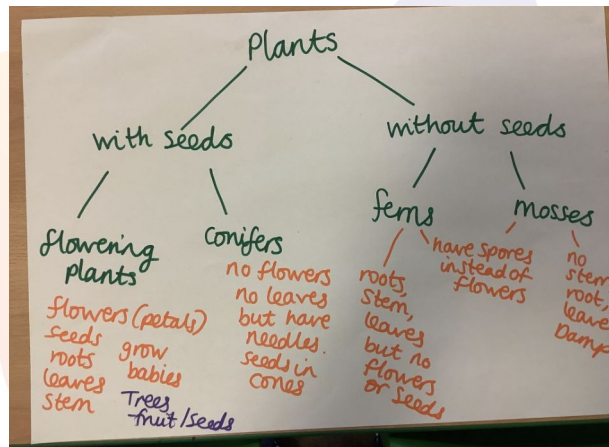 Plants
with seeds
without seeds
flowering
plants
conifers
ferns
mosses
flowers (petals)
seeds
roots
leaves
stem
grow
babies
Trees
fruit/seeds
no flowers
no leaves
but have
needles.
seeds in
cones
roots,
stem,
leaves
but no
flowers
or seeds
have spores
instead of
flowers
no
stem
root,
leave
Damp